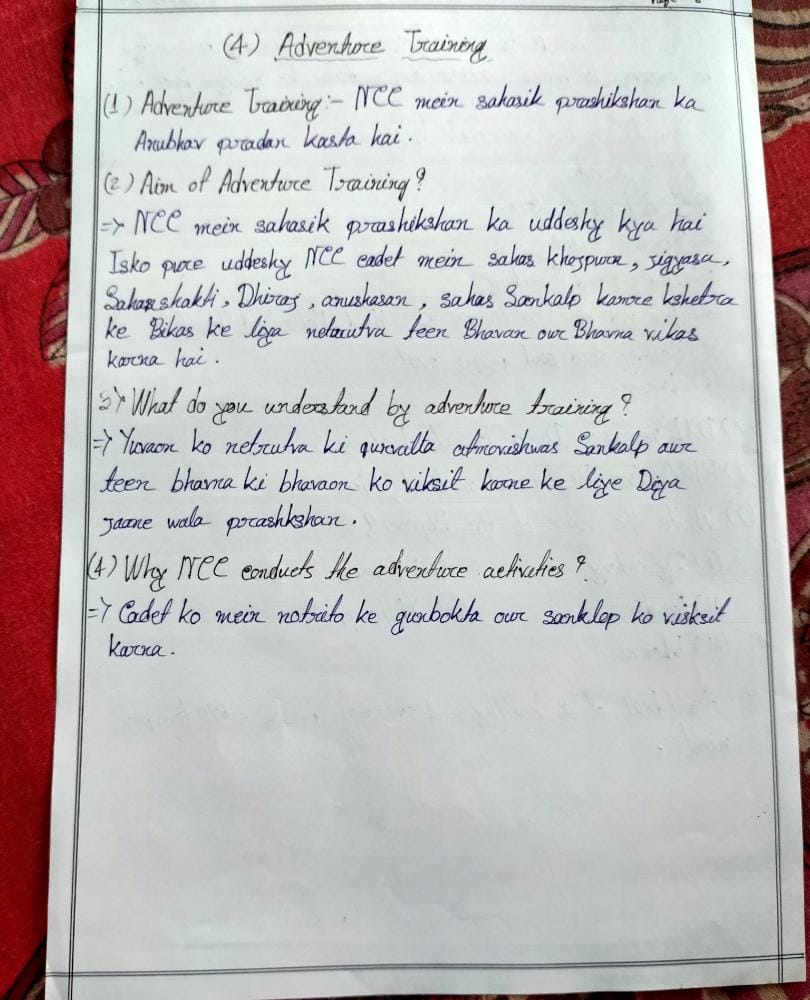 (4) Adventure Training
(1) Adventure Training :- NCC mein sahasik prashikshan ka
Anubhav pradan karta hai.
(2) Aim of Adventure Training ?
=> NCC mein sahasik prashikshan ka uddeshy kya hai
Isko pure uddeshy NCC cadet mein sahas khojpurn, jigyasa,
Sahanshakti, Dhiraj, anushasan, sahas Sankalp kamre kshetra
ke Bikas ke liya netrutva teen Bhavan our Bhavna vikas
karna hai.
3) What do you understand by adventure training ?
=> Yuvaon ko netrutva ki gunvatta atmovishwas Sankalp aur
teen bhavna ki bhavaon ko viksit karne ke liye Diya
jaane wala prashkshan.
(4) Why NCC conducts the adventure activities ?
=> Cadet ko mein notrito ke gunbokta our sanklop ko visksit
karna.